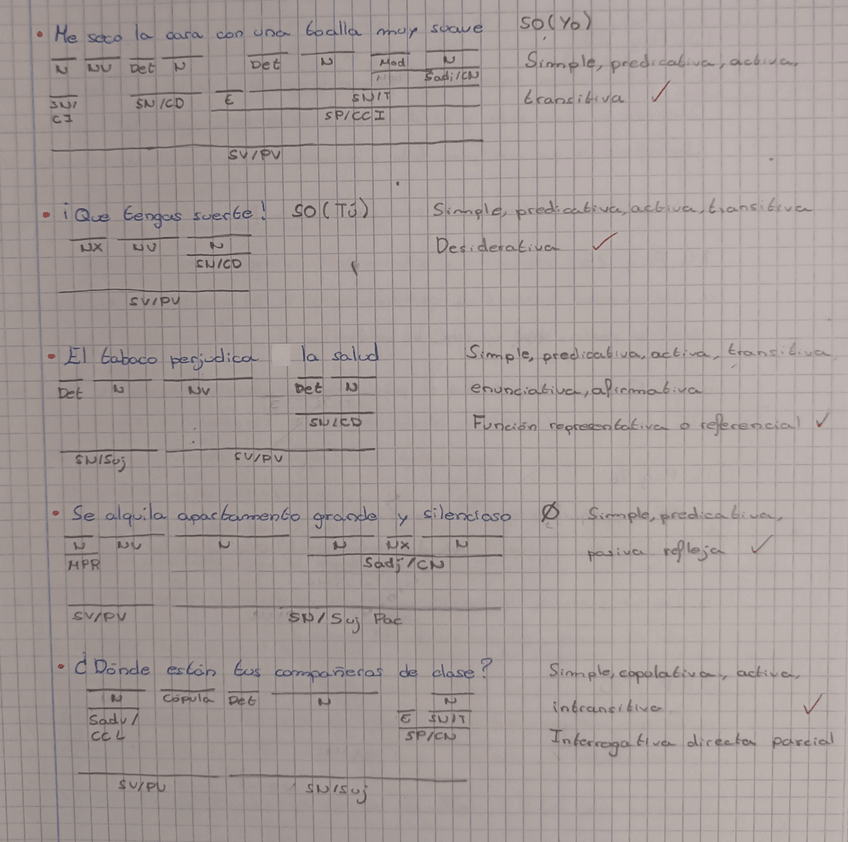 • Me seco la cara con una toalla muy suave SO (Yo)
N NV Det N Det N Mod N Simple, predicativa, activa,
SAdj/CN
SN/ SN/CD E SN/T transitiva ✓
CI SP/CCI
SV/PV
• ¡Que tengas suerte! SO (Tú) Simple, predicativa, activa, transitiva
NX NV N Desiderativa ✓
SN/CD
SV/PV
• El tabaco perjudica la salud Simple, predicativa, activa, transitiva
Det N NV Det N enunciativa, afirmativa
SN/CD Función representativa o referencial ✓
SN/Suj SV/PV
• Se alquila apartamento grande y silencioso Ø Simple, predicativa,
N NV N N NX N pasiva refleja ✓
MPR Sadj/CN
SV/PV SN/Suj Pac
• ¿Dónde están tus compañeras de clase? Simple, copulativa, activa,
N Cópula Det N N intransitiva ✓
Sadv/ E SN/T
CCL SP/CN Interrogativa directa parcial
SV/PV SN/Suj